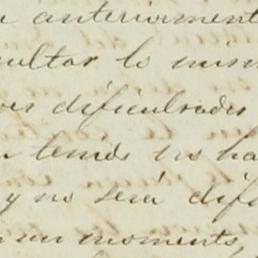 anteriorment
cultar lo mism
dificultades
tenido no ha
y no será dif
un momento,